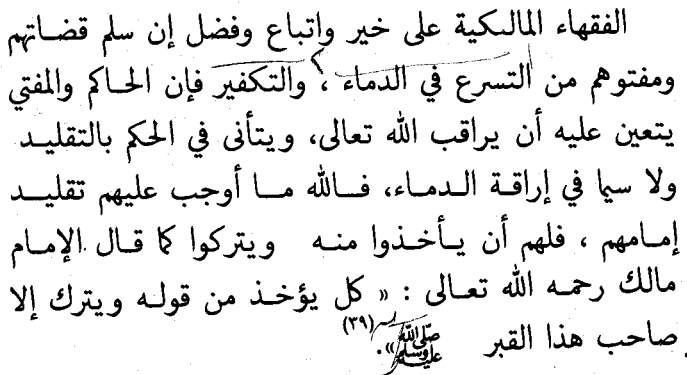 الفقهاء المالكية على خير واتباع وفضل إن سلم قضاتهم
ومفتوهم من التسرع في الدماء ، والتكفير فإن الحاكم والمفتي
يتعين عليه أن يراقب الله تعالى، ويتأنى في الحكم بالتقليد
ولا سيما في إراقة الدماء، فالله ما أوجب عليهم تقليد
إمامهم ، فلهم أن يأخذوا منه ويتركوا كما قال الإمام
مالك رحمه الله تعالى : « كل يؤخذ من قوله ويترك إلا
صاحب هذا القبر ﷺ»(٣٩).